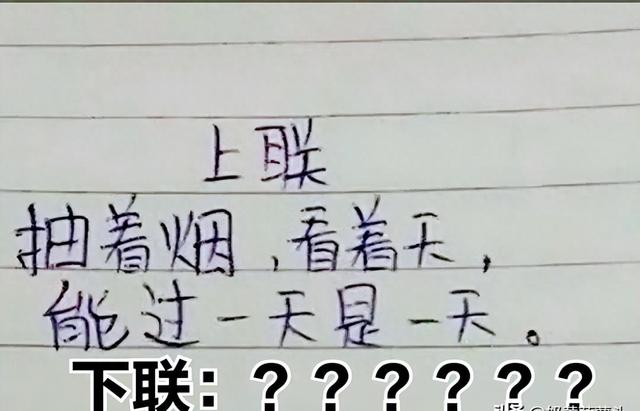 上联
抽着烟，看着天，
能过一天是一天。
下联：？？？？？？